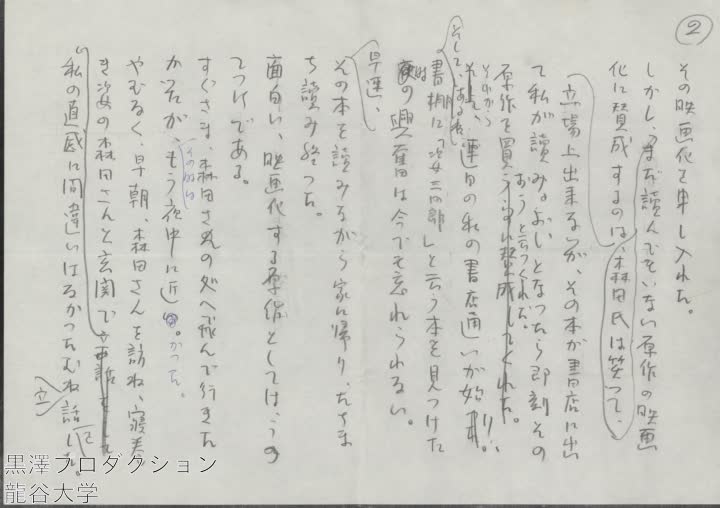 ②
その映画化を申し入れた。
しかし、まだ読んでもいない原作の映画
化に賛成するのは、森田氏は笑って、
立場上出来ないが、その本が書店に出
て私が読みよいとなったら即刻その
原作を買う
おうと云ってくれた。
それから
連日の私の書店通いが始り、
そして、ある夜
書棚に「姿三四郎」と云う本を見つけた
時の興奮は今でも忘れられない。
早速、
その本を読みながら家に帰り、たちま
ち読み終った。
面白い、映画化する原作としては、うっ
てつけである。
すぐさま、森田さんの処へ飛んで行きた
かったが、もう夜中に近かった。
その時は
やむなく、早朝、森田さんを訪ね、寝巻
き姿の森田さんと玄関で立
私の直感に間違いはなかったむね話した。
立
黒澤プロダクション
龍谷大学